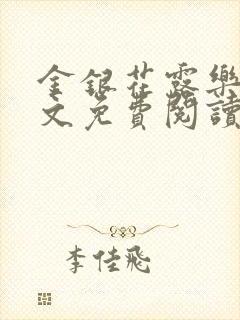 金銀花露樂
文免費閱讀
李佳飛